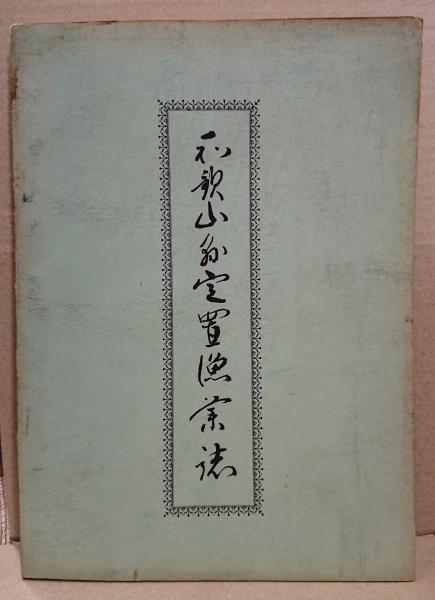 和歌山県定置漁業誌